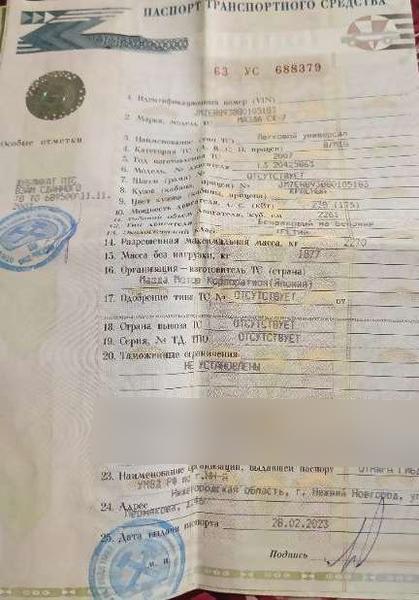 ПАСПОРТ ТРАНСПОРТНОГО СРЕДСТВА
63 УС 688379
Особые отметки
1. Идентификационный номер (VIN)
2. Марка, модель ТС МАЗДА CX-7
3. Наименование (тип ТС) Легковой универсал
4. Категория ТС
5. Год изготовления ТС 2007
6. Модель, № двигателя L3 20425663
7. Шасси (рама) № ОТСУТСТВУЕТ
8. Кузов (кабина, прицеп) № JM7ER093800105183
9. Цвет кузова КРАСНЫЙ
10. Мощность двигателя, л. с. (кВт) 238 (175)
11. Рабочий объем двигателя, куб. см 2261
12. Тип двигателя Бензиновый на бензине
13. Экологический класс
14. Разрешенная максимальная масса, кг 2270
15. Масса без нагрузки, кг 1877
16. Организация-изготовитель ТС (страна)
Мазда Мотор Корпоратион (Япония)
17. Одобрение типа ТС № ОТСУТСТВУЕТ от
18. Страна вывоза ТС ОТСУТСТВУЕТ
19. Серия, № ТД, ТПО ОТСУТСТВУЕТ
20. Таможенные ограничения
НЕ УСТАНОВЛЕНЫ
23. Наименование организации, выдавшей паспорт
УМВД РФ по г.
Нижегородская область, г. Нижний Новгород, ул
24. Адрес
25. Дата выдачи паспорта 28.02.2023
М. П. Подпись